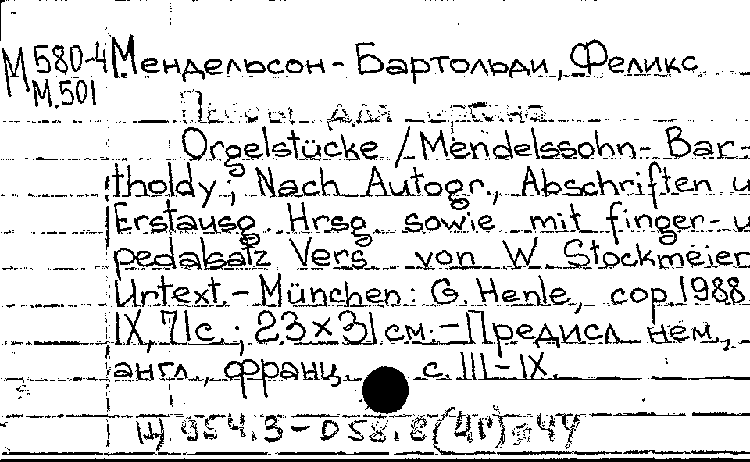 М580-4 Мендельсон-Бартольди, Феликс
М.501
Пьесы для органа
Orgelstücke / Mendelssohn-Bar=
tholdy; Nach Autogr., Abschriften u
Erstausg. Hrsg. sowie mit finger- u
pedalsatz Vers. von W. Stockmeier
Urtext. - München: G. Henle, cop. 1988
IX, 71 с.; 23×31 см. - Предисл нем.,
англ., франц. с. III-IX.